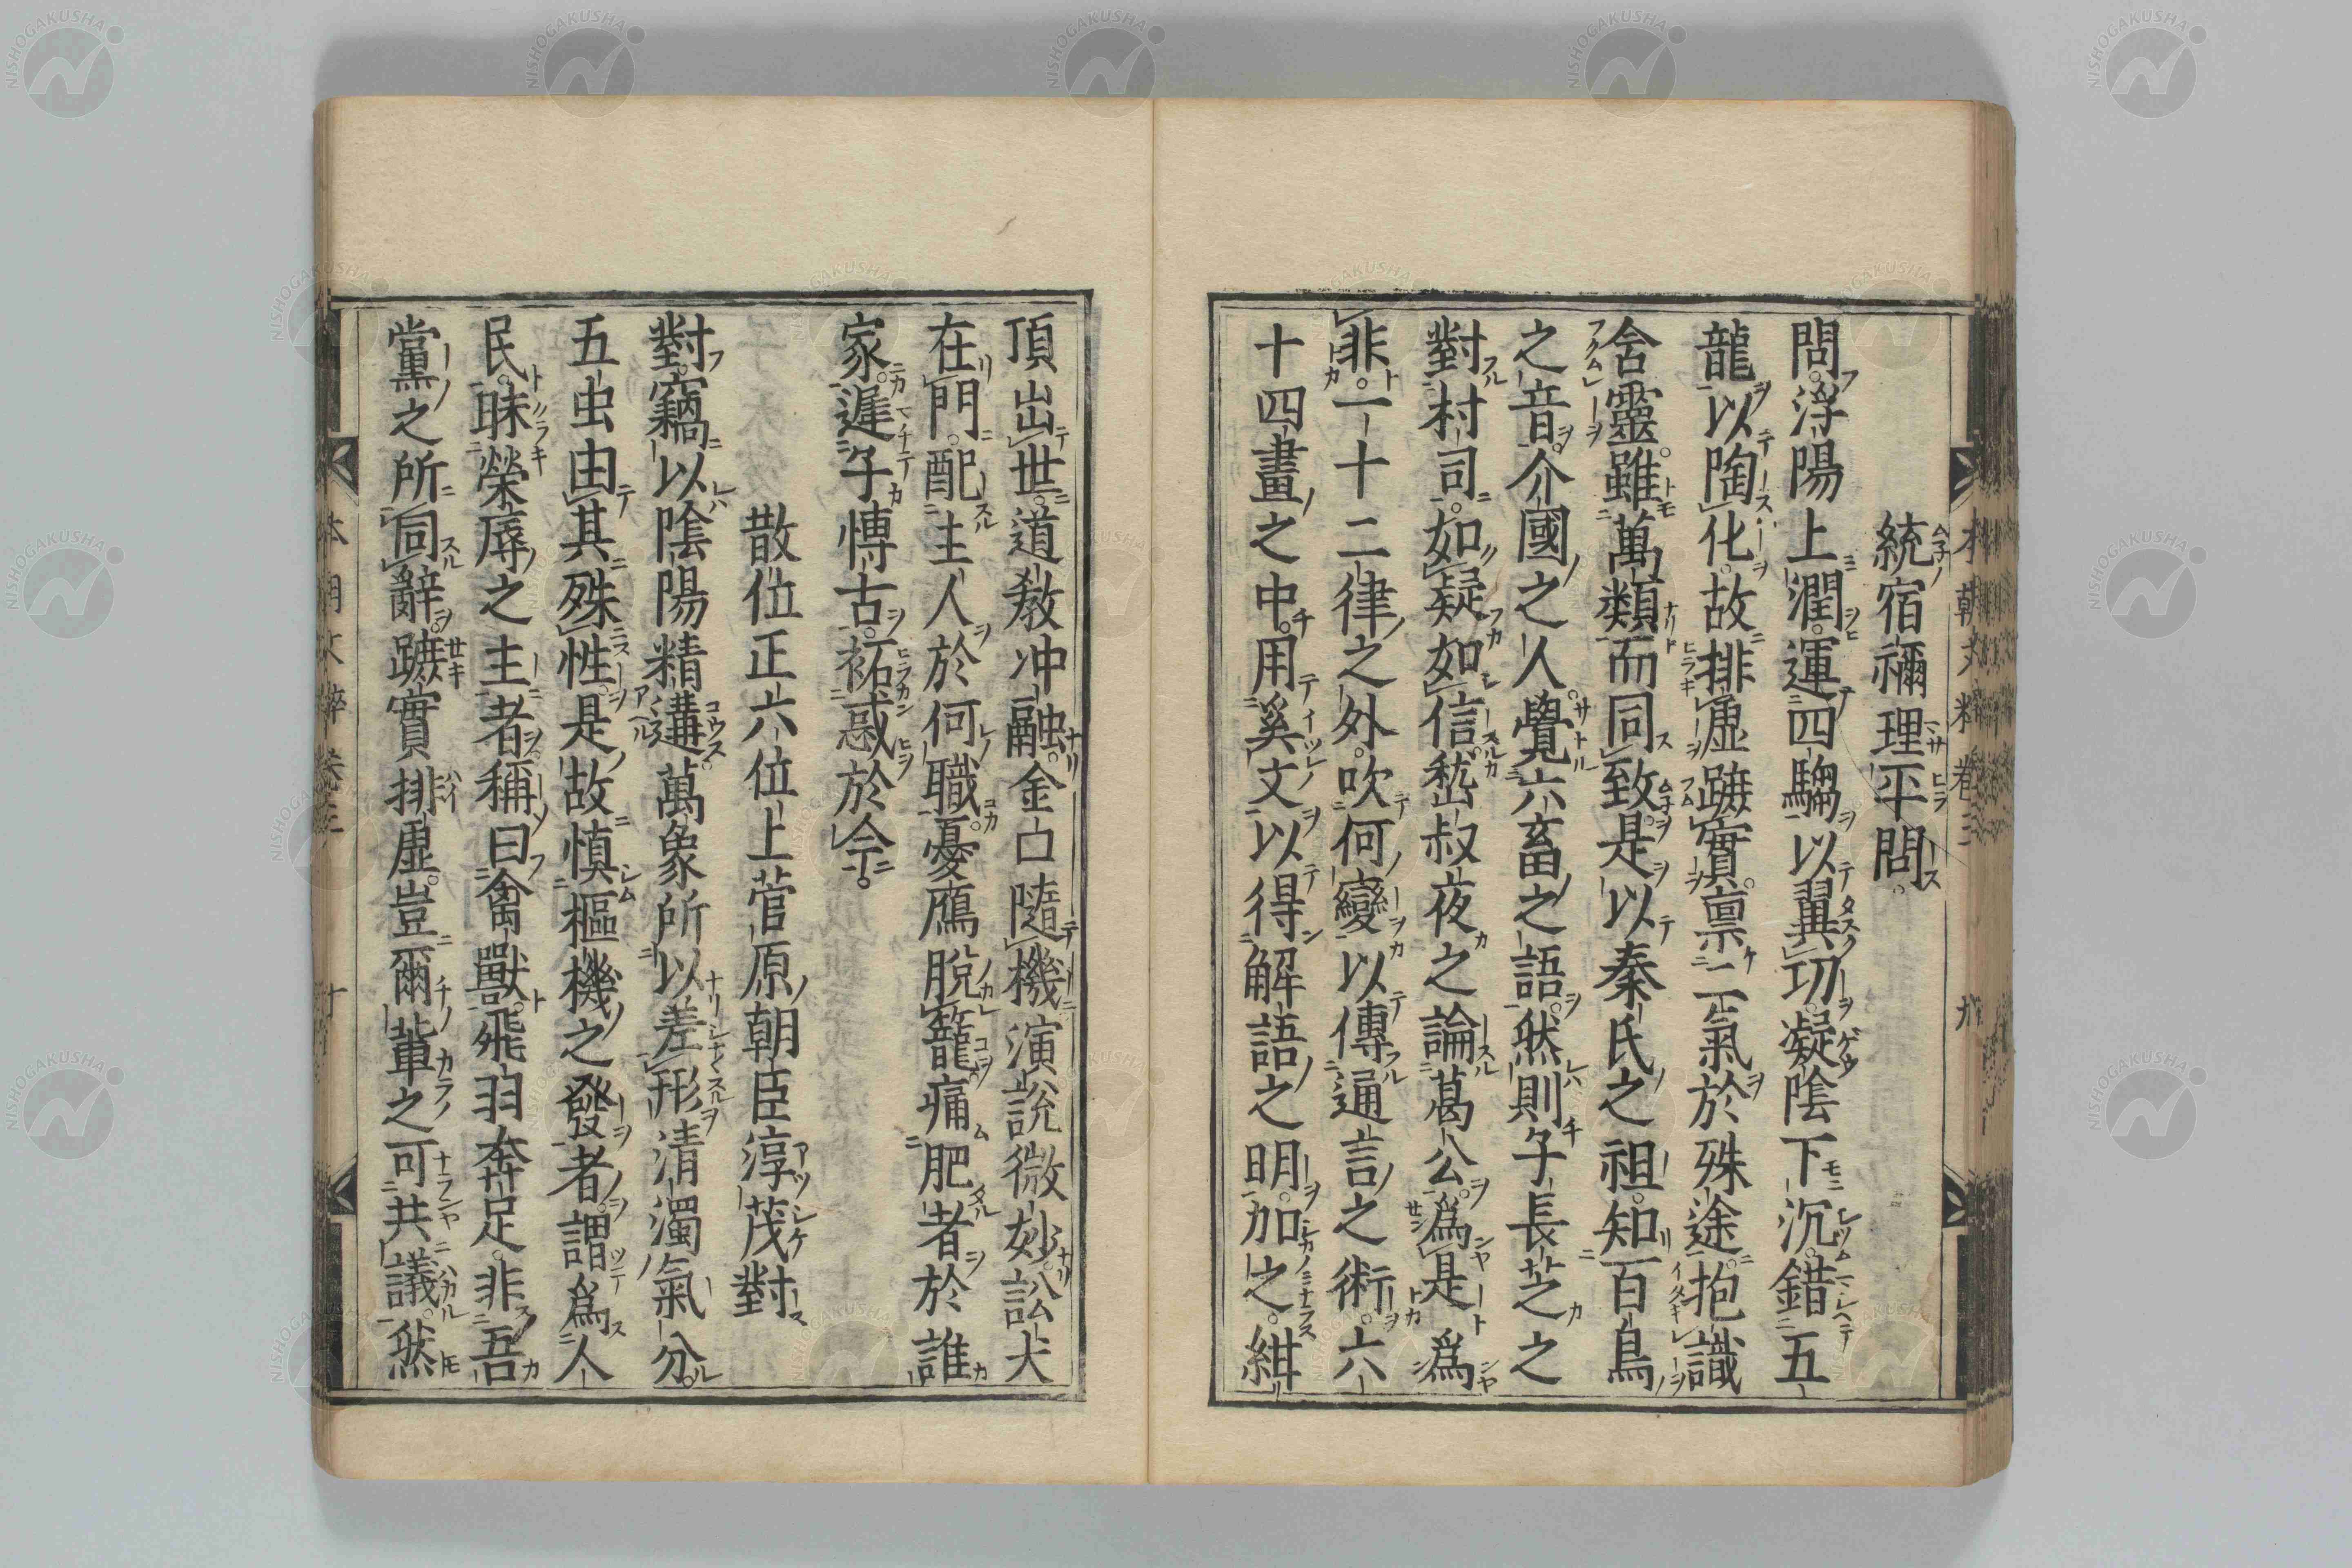 統宿禰理平問
問浮陽上潤運四騶以翼切凝陰下沉錯五
龍以陶化故排虛蹠實禀二氣於殊途抱識
含靈雖萬類而同致是以秦氏之祖知百鳥
之音介國之人覺六畜之語然則子長芝之
對村司如疑如信嵇叔夜之論葛公為是爲
非一十二律之外吹何變以傳通言之術六
十四畫之中用奚文以得解語之明加之紺
頂出世道敎冲融金口隨機演說微妙訟夫
在門配主人於何職憂鴈脫籠痛肥者於誰
家遲子慱古袥惑於今
散位正六位上菅原朝臣淳茂對
對竊以陰陽精遘萬象所以差形清濁氣分
五虫由其殊性是故慎樞機之發者謂爲人
民昧榮辱之主者稱曰禽獸飛羽奔足非吾
黨之所同辭蹠實排虛豈爾輩之可共議然
本朝文粹卷三
九
本朝文粹卷三
十
NISHOGAKUSHA